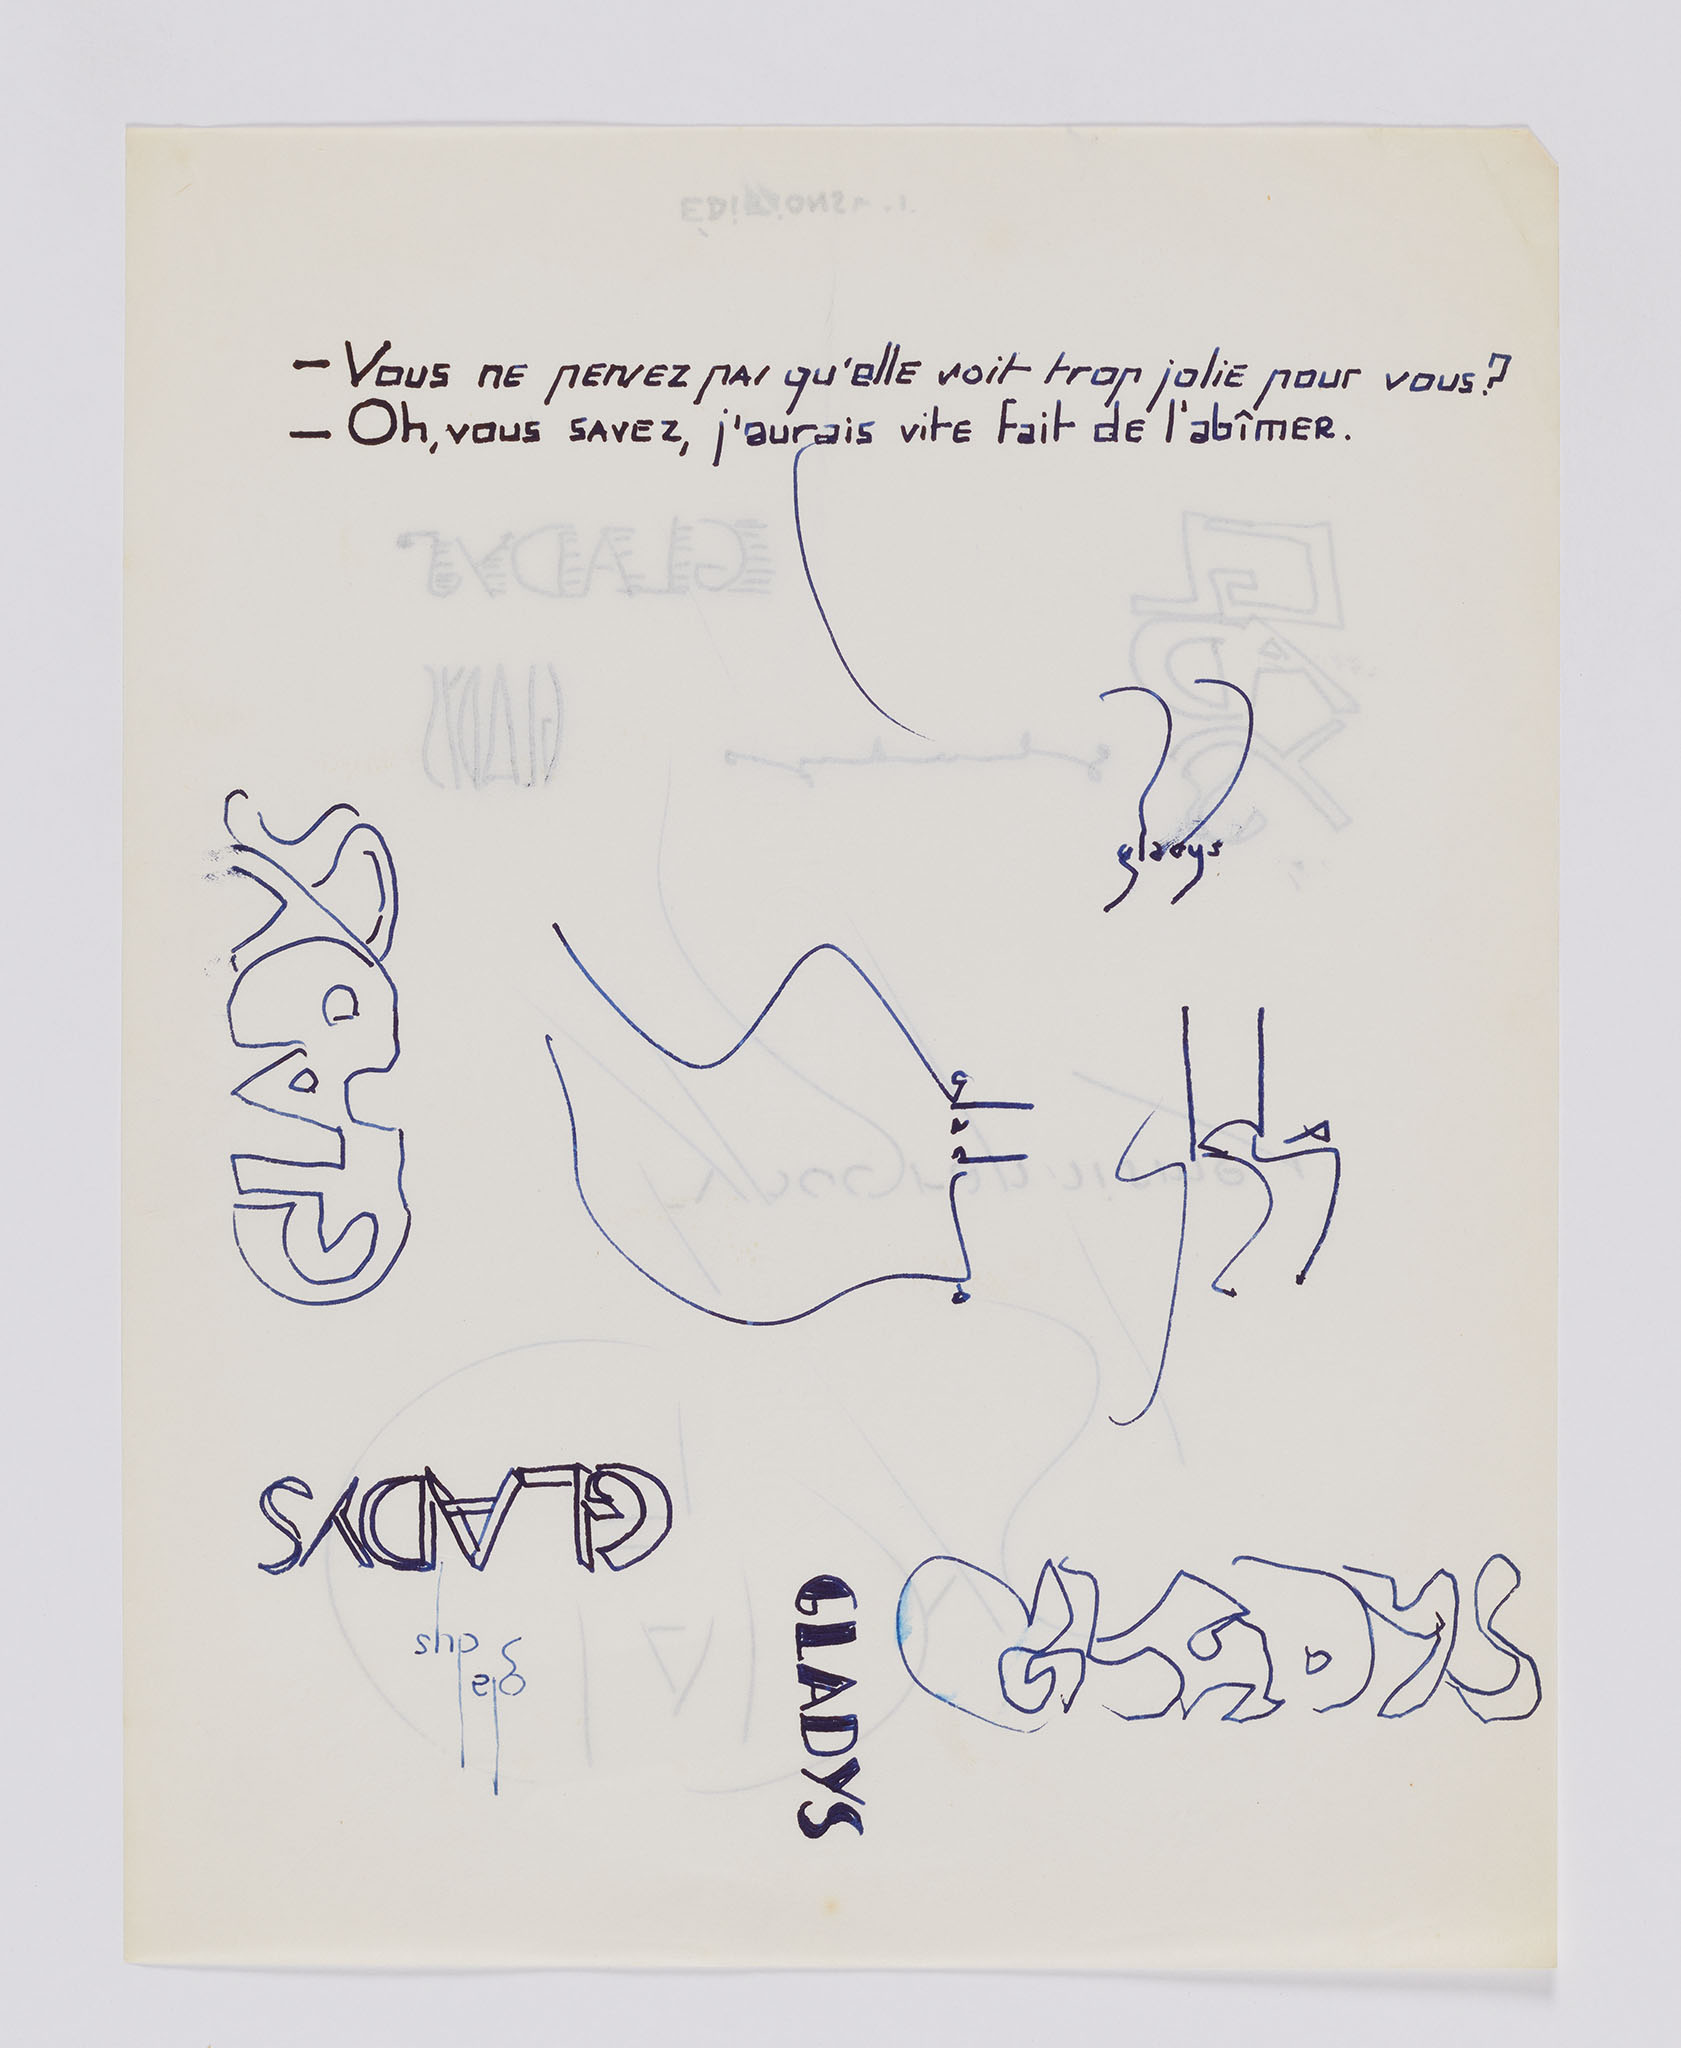 – Vous ne pensez pas qu'elle soit trop jolie pour vous?
– Oh, vous savez, j'aurais vite fait de l'abîmer.
GLADYS
GLADYS
gladys
GLADYS
gladys
glad
GLADYS
gladys
GLADYS
GLADYS